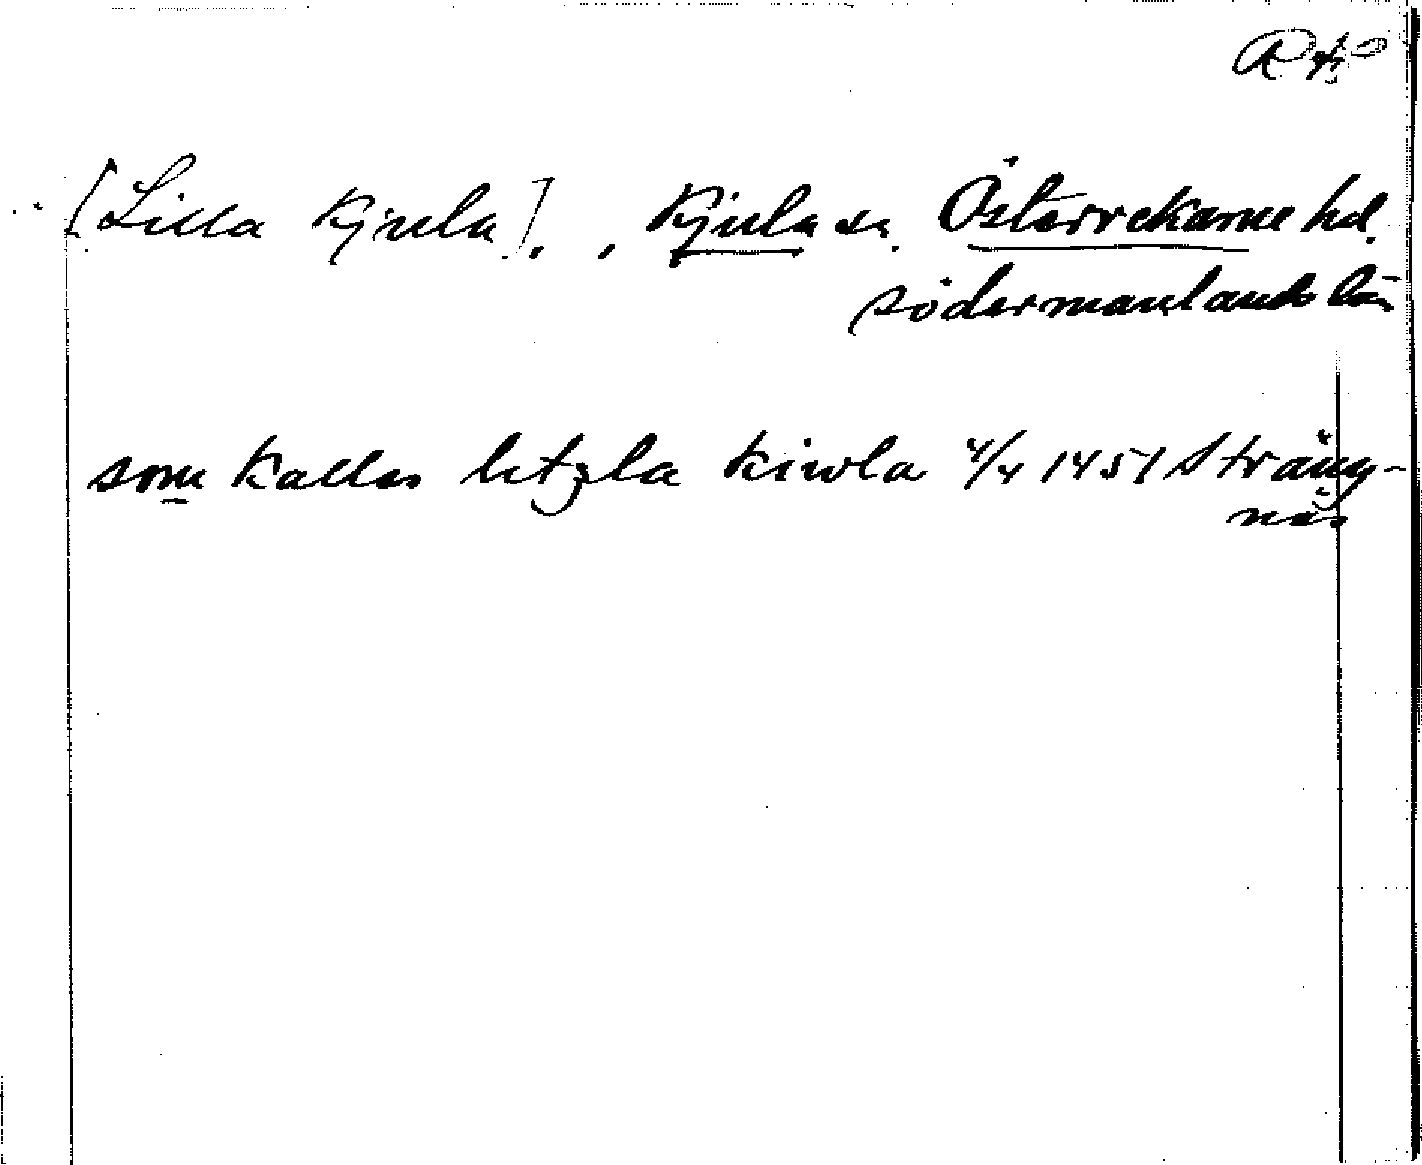 [Lilla Kjula]. , Kjula sn. Österrekarne hd.
Södermanlands län
som kallas litzla kiwla 4/4 1451 Sträng-
näs